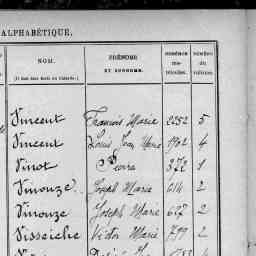 ALPHABÉTIQUE.
NOM. PRÉNOMS ET SURNOMS. NUMÉROS MATRICULES. NUMÉRO DU VOLUME.
Vincent François Marie 2252 5
Vincent Louis Jean Marie 1902 4
Vinot Pierre 372 1
Vinouze Joseph Marie 614 2
Vinouze Joseph Marie 627 2
Visseiche Victor Marie 799 2